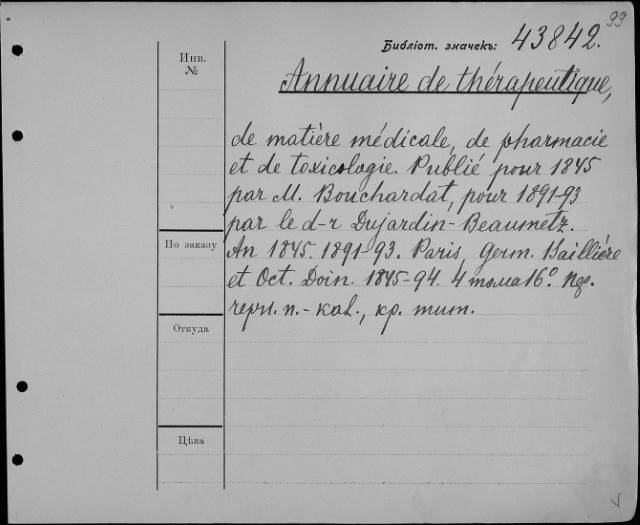 99
Библіот. значекъ: 43842.
Инв.
№
Annuaire de thérapeutique,
de matière médicale, de pharmacie
et de toxicologie. Publié pour 1845
par M. Bouchardat, pour 1891-93
par le d-r Dujardin-Beaumetz.
По заказу
An 1845. 1891-93. Paris, Germ. Baillière
et Oct. Doin. 1845-94. 4 тома 16º.
черн. п.-кол., кр. тит.
Откуда
Цѣна